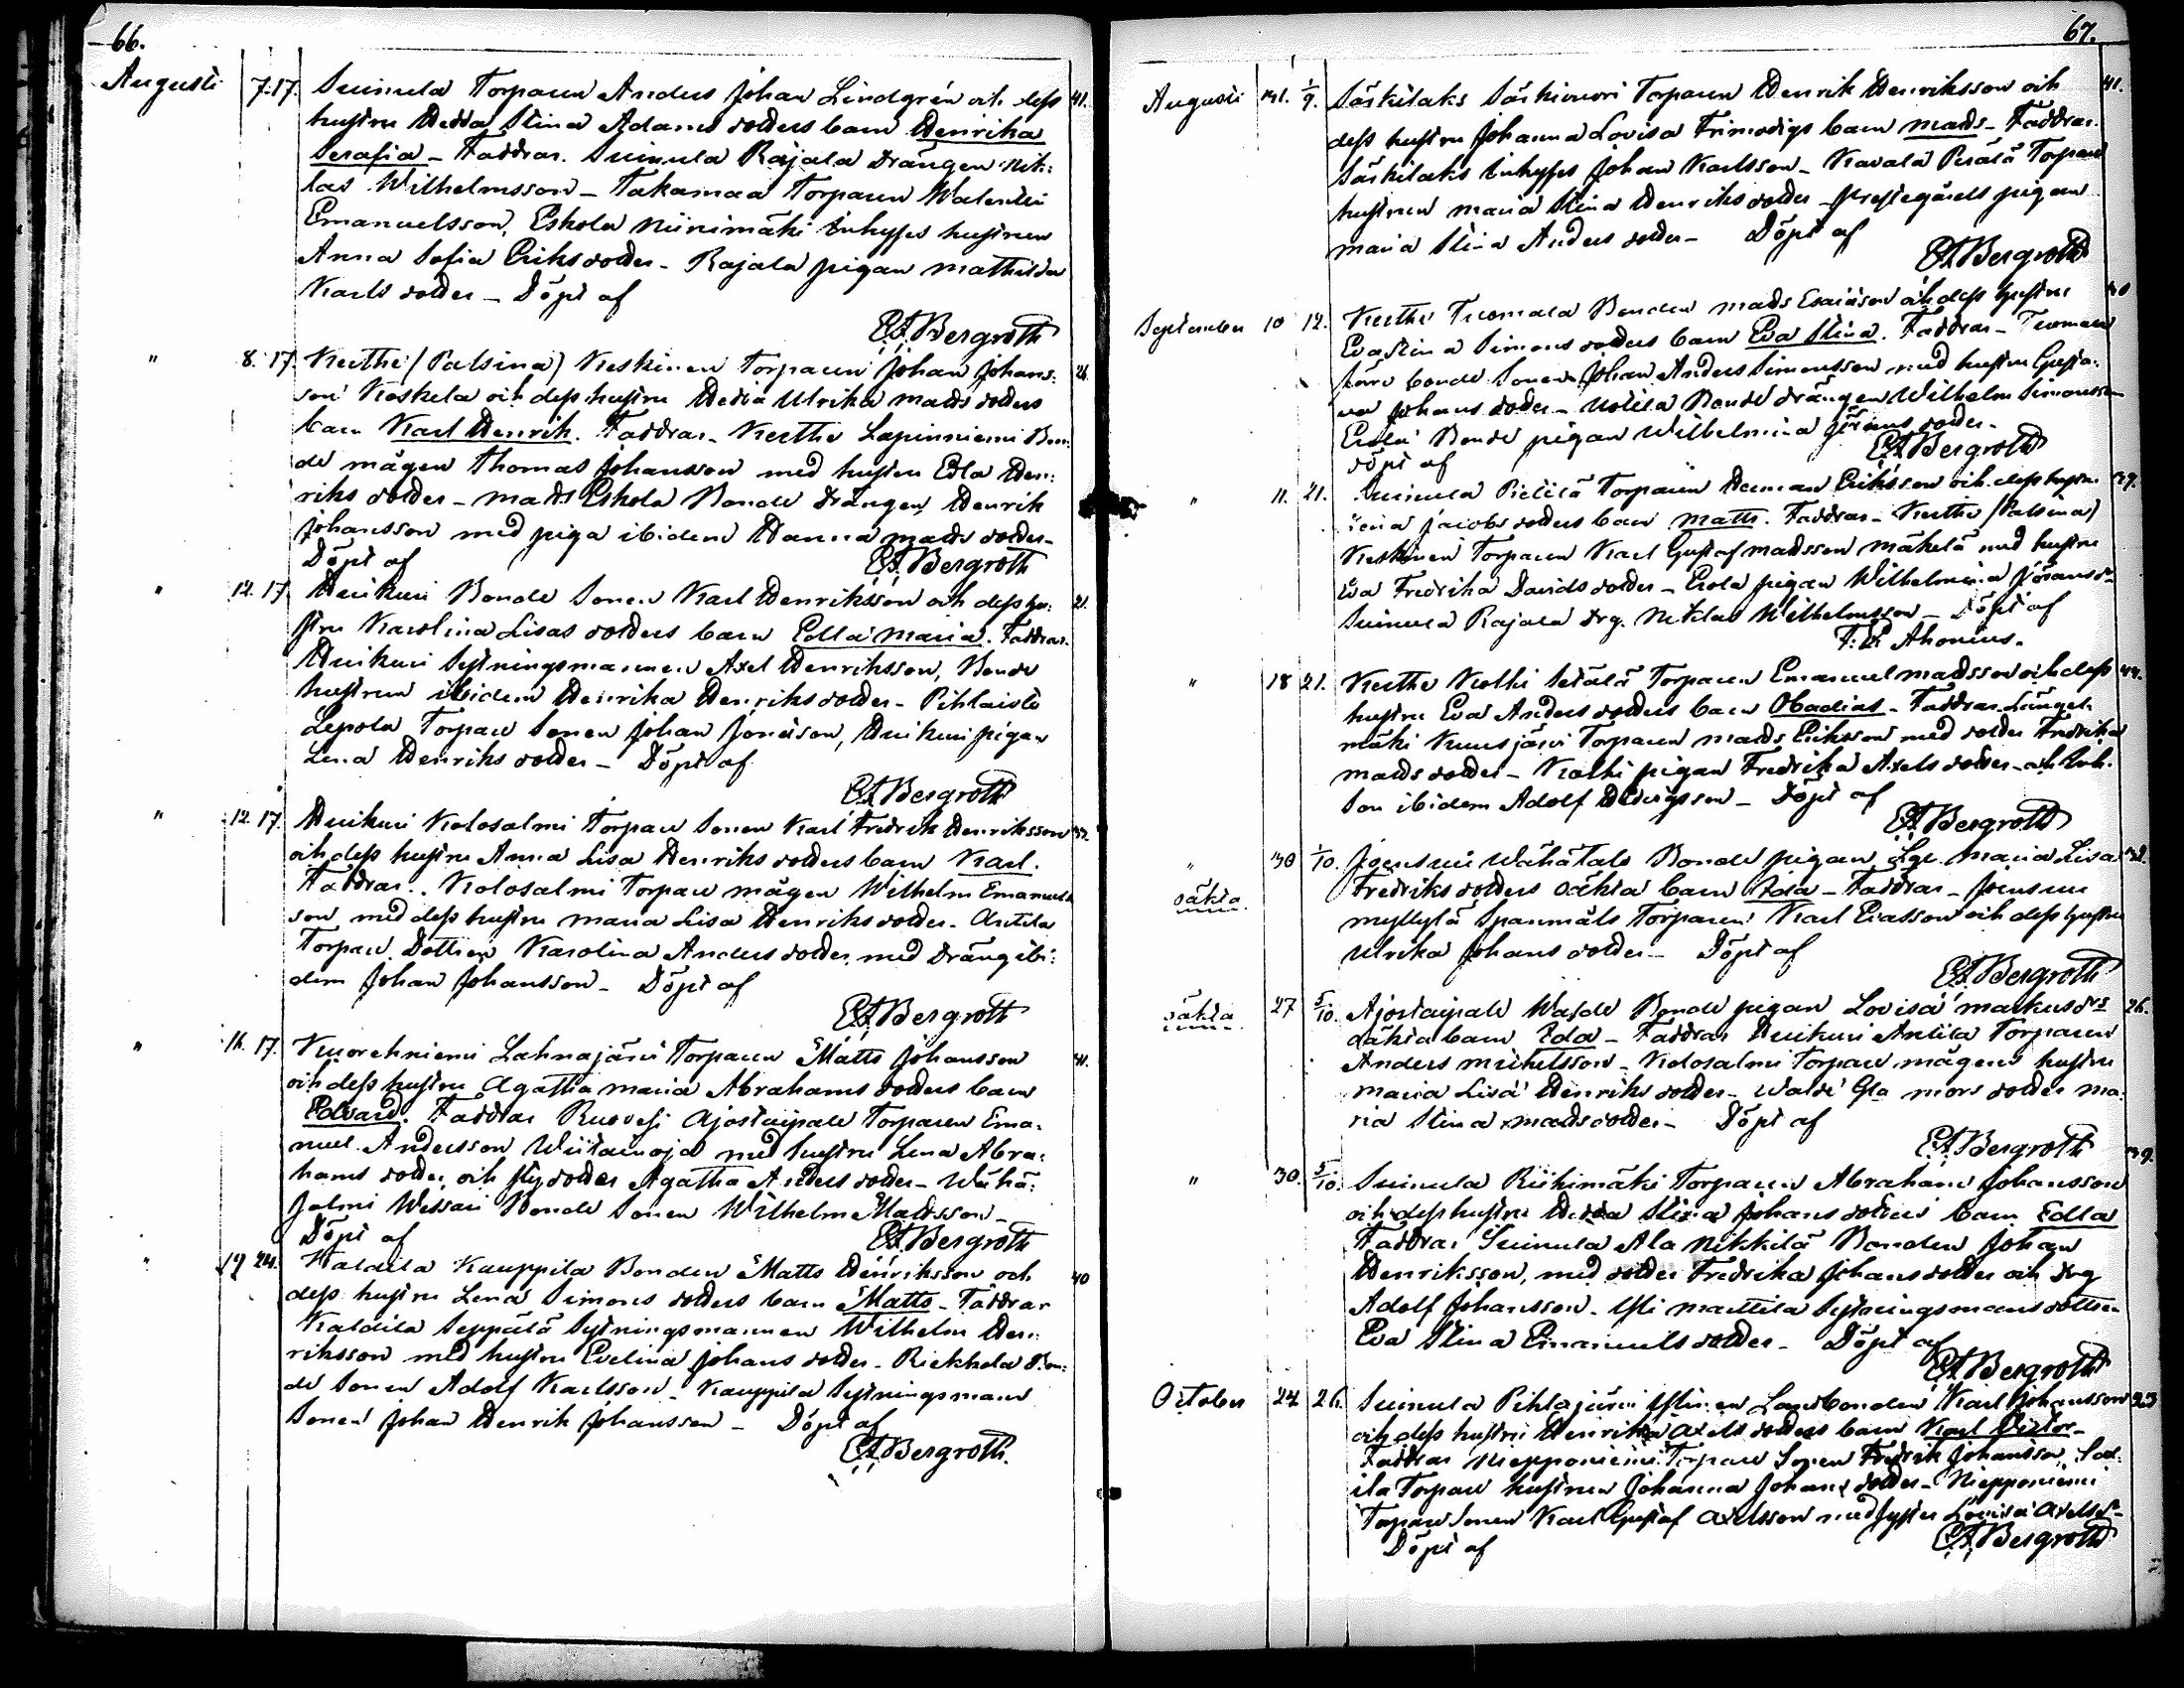 66.
Augusti 7. 17. Suinula Torparen Anders Johan Lindgrén och dess 41.
hustru Hedda Stina Adams dotters barn Henrika
Serafia – Faddrar. Suinula Rajala Drängen Nik-
las Wilhelmsson – Takamaa Torparen Walentin
Emanuelsson, Eskola Niinimäki Inhyses hustrun
Anna Sofia Eriks dotter – Rajala pigan Mathilda
Karls dotter – Döpt af
EA Bergroth
" 8. 17. Kerthe (Palsina) Keskinen Torparen Johan Johans-
son Koskela och dess hustru Hedda Ulrika Mats dotters
barn Karl Henrik. Faddrar – Kerthe Lapinniemi Bon-
de mågen Thomas Johansson med hustru Edla Hen-
riks dotter – Matts Eskola Bonde Drängen Henrik
Johansson med piga ibidem Hanna Mats dotter –
Döpt af EA Bergroth
" 12. 17. Huikuri Bonde Sonen Karl Henriksson och dess hu- 21.
stru Karolina Lisas dotters barn Edla Maria. Faddrar
Huikuri Sytningsmannen Axel Henriksson, Bonde
hustrun ibidem Henrika Henriks dotter – Pihlaisto
Lepola Torpare Sonen Johan Jonasson, Huikuri pigan
Lena Henriks dotter – Döpt af
EA Bergroth
" 12. 17. Huikuri Kolosalmi Torpare Sonen Karl Fredrik Henriksson
och dess hustru Anna Lisa Henriks dotters barn Karl.
Faddrar. Kolosalmi Torpare mågen Wilhelm Emanuels
son med dess hustru Maria Lisa Henriks dotter. Antila
Torpare Dottren Karolina Anders dotter med Dräng ibi-
dem Johan Johansson – Döpt af
EA Bergroth
" 16. 17. Kuorehniemi Lahnajärvi Torparen Matts Johansson 41.
och dess hustru Agatha Maria Abrahams dotters barn
Edvard. Faddrar Ruovesi Ajostaipale Torparen Ema-
nuel Andersson Wiitainoja med hustru Lena Abra-
hams dotter, och styfdotter Agatha Anders dotter – Wähä-
Salmi Wessari Bonde Sonen Wilhelm Matsson –
Döpt af EA Bergroth
" 19 24. Kaldila Kauppila Bonden Matts Henriksson och 40
dess hustru Lena Simons dotters barn Matts – Faddrar
Kaldila Seppälä Sytningsmannen Wilhelm Hen-
riksson med hustru Evelina Johans dotter – Riekkola Bon-
de Sonen Adolf Karlsson – Kauppila Sytningsmans
Sonen Johan Henrik Johansson – Döpt af
EA Bergroth.
67.
Augusti 31. 1/9. Särkilaks Särkivuori Torparen Henrik Henriksson och 41.
dess hustru Johanna Lovisa Frimodigs barn Mats – Faddrar.
Särkilaks Inhyses Johan Karlsson – Kavala Perälä Torpare
hustrun Maria Stina Henriks dotter – Prestegårds pigan
Maria Stina Anders dotter – Döpt af
EA Bergroth
September 10 12. Kerthe Tuomala Bonden Mats Esaiason och dess hustru 40
Eva Stina Simons dotters barn Eva Stina. Faddrar – Tuomala
bonde Sonen Johan Anders Simonsson med hustru Gusta-
va Johans dotter – Uotila Bonde drängen Wilhelm Simonsson
Erola Bonde pigan Wilhelmina Görans dotter –
Döpt af EA Bergroth
" 11. 21. Suinula Pietilä Torparen Herman Eriksson och dess hustru 39.
Jacobs dotters barn Matts. Faddrar – Kerthe (Palsina)
Keskinen Torparen Karl Gustaf Matsson Mäkelä med hustru
Eva Fredrika Davids dotter – Erola pigan Wilhelmina Göransdr
Suinula Rajala Drg. Niklas Wilhelmsson – Döpt af
F. E. Ahonius.
" 18 21. Kerthe Kolhi Setälä Torparen Emanuel Matsson och dess 44.
hustru Eva Anders dotters barn Obadias – Faddrar Längel-
mäki Kuusjärvi Torparen Mats Eriksson med dotter Fredrika
Mats dotter – Kolhi pigan Fredrika Axels dotter – och
Son ibidem Adolf Hedvigsson – Döpt af
EA Bergroth
" 30 1/10. Joensuu Wähätalo Bonde pigan Maria Lisa 32.
oäkta Fredriks dotters oäkta barn Ida – Faddrar – Joensuu
Myllylä Spanmåls Torparen Karl Evasson och dess hustru
Ulrika Johans dotter – Döpt af
EA Bergroth
oäkta 27 5/10. Ajostaipale Walde Bonde pigan Lovisa Markus drs 26.
oäkta barn Ida – Faddrar Huikuri Antila Torparen
Anders Mikelsson – Kolosalmi Torpare mågens hustru
Maria Lisa Henriks dotter – Walde mors dotter Ma-
ria Stina Mats dotter – Döpt af
EA Bergroth
" 30. 5/10. Suinula Riihimäki Torparen Abraham Johansson 39.
och dess hustru Hedda Stina Johans dotters barn Edla
Faddrar Suinula Ala Nikkilä Bonden Johan
Henriksson, med dotter Fredrika Johans dotter och Drg
Adolf Johansson. Yli Marttila Sytningsmans dottren
Eva Stina Emanuels dotter – Döpt af
EA Bergroth
October 24 26. Suinula Pihlajärvi Landbonden Karl Johansson 23
och dess hustru Henrika Axels dotters barn Karl Victor –
Faddrar Niepponiemi Torpare Sonen Fredrik Johansson,
Torpare hustrun Johanna Johans dotter – Niepponiemi
Torpare Sonen Karl Gustaf Axelsson med syster Lovisa Axelsdr –
Döpt af EA Bergroth